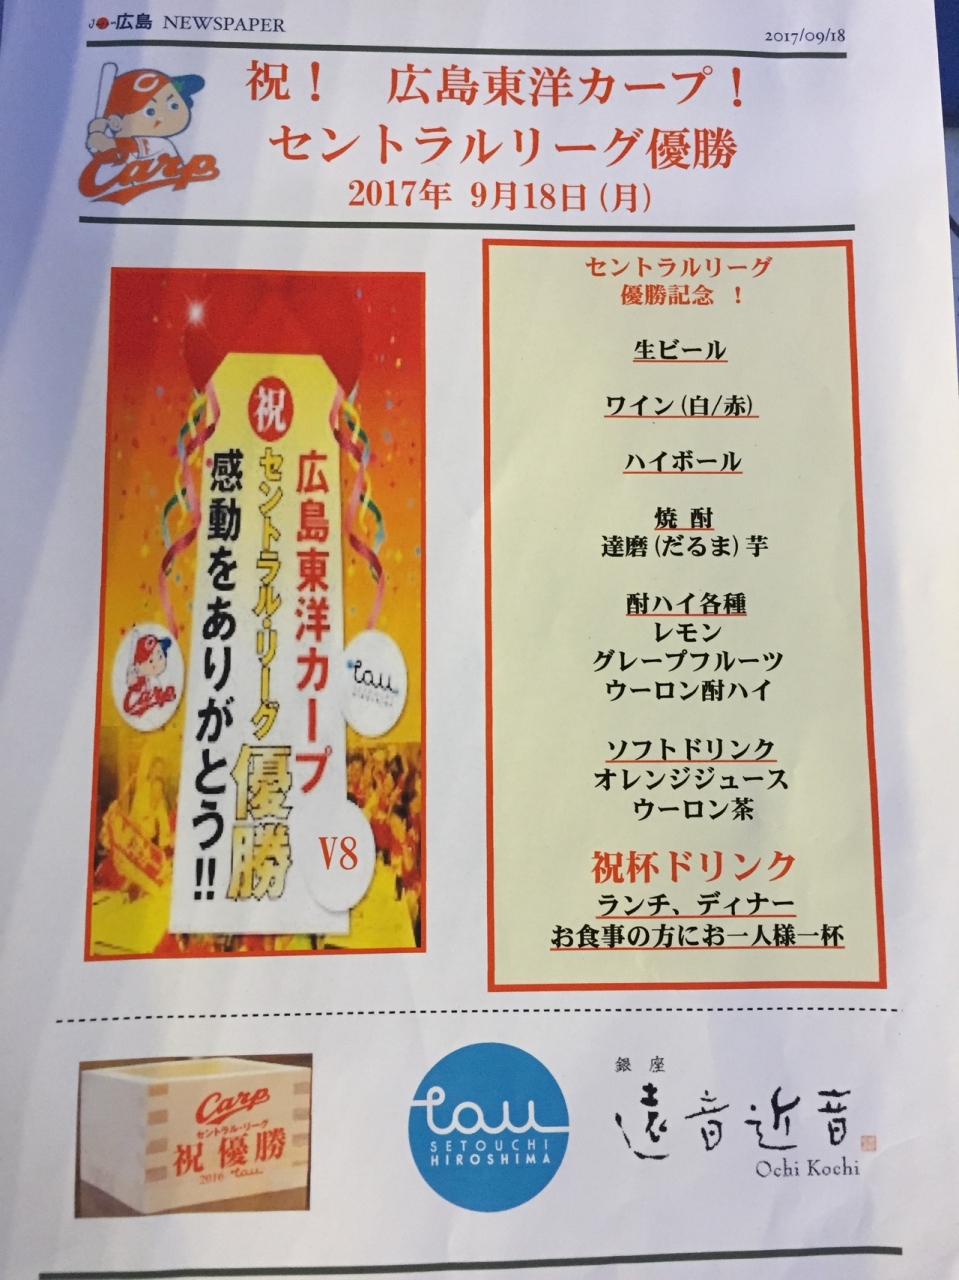 J-広島 NEWSPAPER
2017/09/18
祝！ 広島東洋カープ！
Carp
セントラルリーグ優勝
2017年 9月18日(月)
祝
広島東洋カープ
セントラル・リーグ優勝
感動をありがとう!!
Carp
tau
V8
セントラルリーグ
優勝記念 ！
生ビール
ワイン(白/赤)
ハイボール
焼 酎
達磨(だるま)芋
酎ハイ各種
レモン
グレープフルーツ
ウーロン酎ハイ
ソフトドリンク
オレンジジュース
ウーロン茶
祝杯ドリンク
ランチ、ディナー
お食事の方にお一人様一杯
Carp
セントラル・リーグ
祝優勝
2016 tau
tau
SETOUCHI
HIROSHIMA
銀座
遠音近音
Ochi Kochi